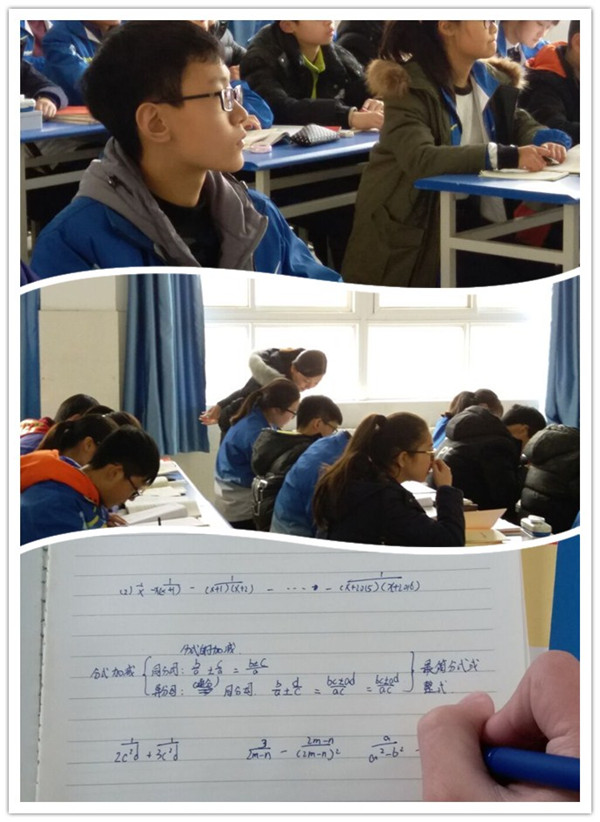 (2) 1/x - 1/x(x+1) - 1/(x+1)(x+2) - …… - 1/(x+2015)(x+2016)
分式的加减
分式加减 { 同分母: b/a ± c/a = b±c/a } 最简分式或
异分母: 通分 同分母. b/a ± d/c = bc±ad/ac = bc±ad/ac 整式.
1/2c²d + 1/3c²d 3/2m-n - 2m-n/(2m-n)² a/a²-b² -